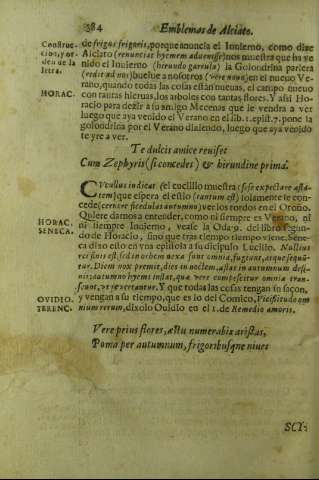 384 Emblemas de Alciato.
Construc-
cion, y or-
den de la
letra.
de frigus frigoris, porque anuncia el Inuierno, como dize
Alciato (renuncias hyemem aduenisse) nos muestra que ha ve
nido el Inuierno (hirundo garrula) la Golondrina parlera
(redit ad nos) buelue a nosotros (vere nouo) en el nueuo Ve-
rano, quando todas las cosas estàn nueuas, el campo nueuo
HORAC.
con tantas hieruas, los arboles con tantas flores. Y assi Ho-
racio para dezir a su amigo Mecenas que le vendra a ver
luego que aya venido el Verano en el lib. 1. epist. 7. pone la
golondrina por el Verano diziendo, luego que aya venido
te yre a ver.
Te dulcis amice reuiset
Cum Zephyris (si concedes) & hirundine prima.
CVcullus indicat (el cuclillo muestra (sese expectare æsta-
tem) que espera el estio (tantum est) solamente le con-
cede, (cernere ficedulas autumno) ver los tordos en el Otoño.
Quiere damos a entender, como ni siempre es Verano, ni
HORAC.
SENECA.
ni siempre Inuierno, vease la Oda 9. del libro segun-
do de Horacio, sino que tras tiempo tiempo viene. Sene-
ca dixo esto en vna epistola a su dicipulo Lucilio. Nullius
rei finis est, sed in orbem nexa sunt omnia, fugiunt, ac que sequū-
tur. Diem nox premit, dies in noctem, æstas in autumnum desi-
nit, autumno hyems instat, quæ vere compescitur omnia tran-
seunt, vt reuertantur. Y que todas las cosas tengan su saçon,
OVIDIO.
TERENC.
y vengan a su tiempo, que es lo del Comico, Vicissitudo om
nium rerum, dixolo Ouidio en el 1. de Remedio amoris.
Vere prius flores, æstu numerabis aristas,
Poma per autumnum, frigoribusque niues
SCY: